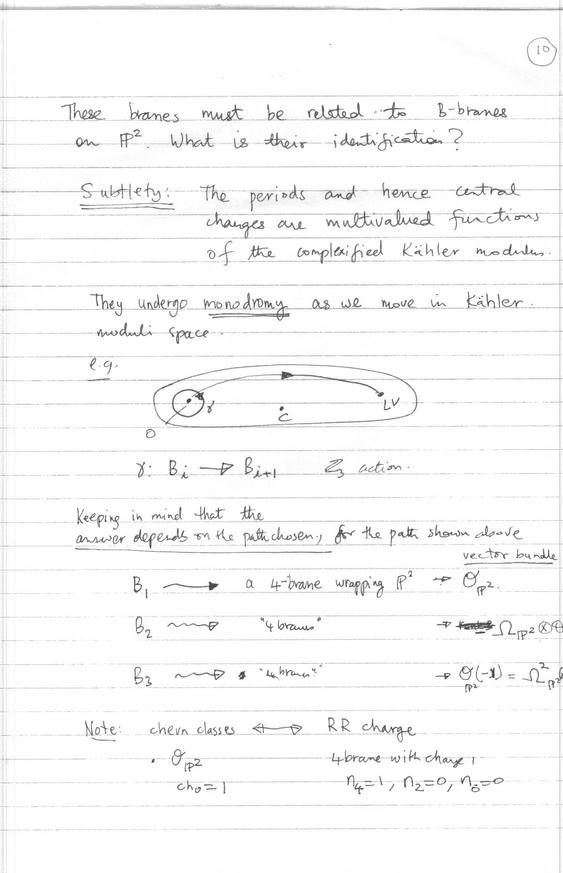 10
These branes must be related to B-branes
on ℙ². What is their identification?
Subtlety: The periods and hence central
charges are multivalued functions
of the complexified Kähler modulus.
They undergo monodromy as we move in Kähler
moduli space.
e.g.
γ
C
LV
O
γ: Bᵢ → Bᵢ₊₁ ℤ₃ action.
Keeping in mind that the
answer depends on the path chosen, for the path shown above
vector bundle
B₁ ⟿ a 4-brane wrapping ℙ² → 𝒪_ℙ².
B₂ ⟿ "4 branes" → Ω_ℙ²⊗
B₃ ⟿ "4 branes" → 𝒪_ℙ²(-1) = Ω²_ℙ²
Note: chern classes ↔ RR charge
· 𝒪_ℙ² 4 brane with charge 1
ch₀=1 n₄=1, n₂=0, n₀=0